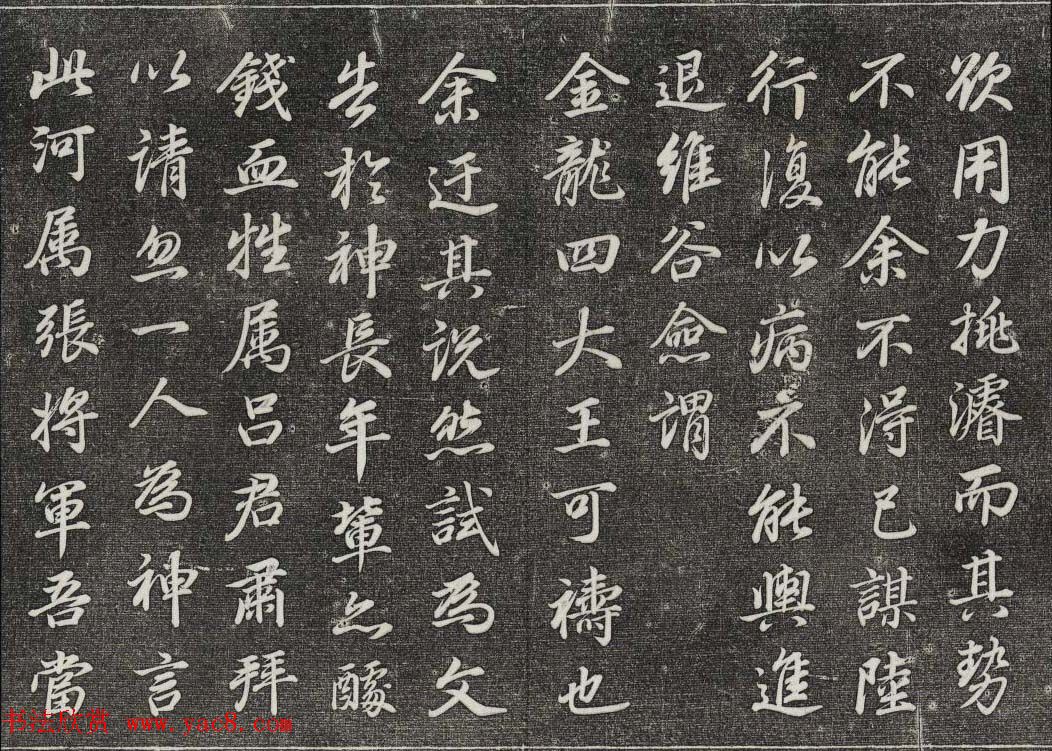 欲用力挑濬而其势
不能余不得已謀陸
行復以病不能輿進
退維谷僉謂
金龍四大王可禱也
余迂其説然試為文
告於神長年輩亦醵
錢血牲属吕君肅拜
以請忽一人為神言
此河属張將軍吾當
书法欣赏 www.yac8.com